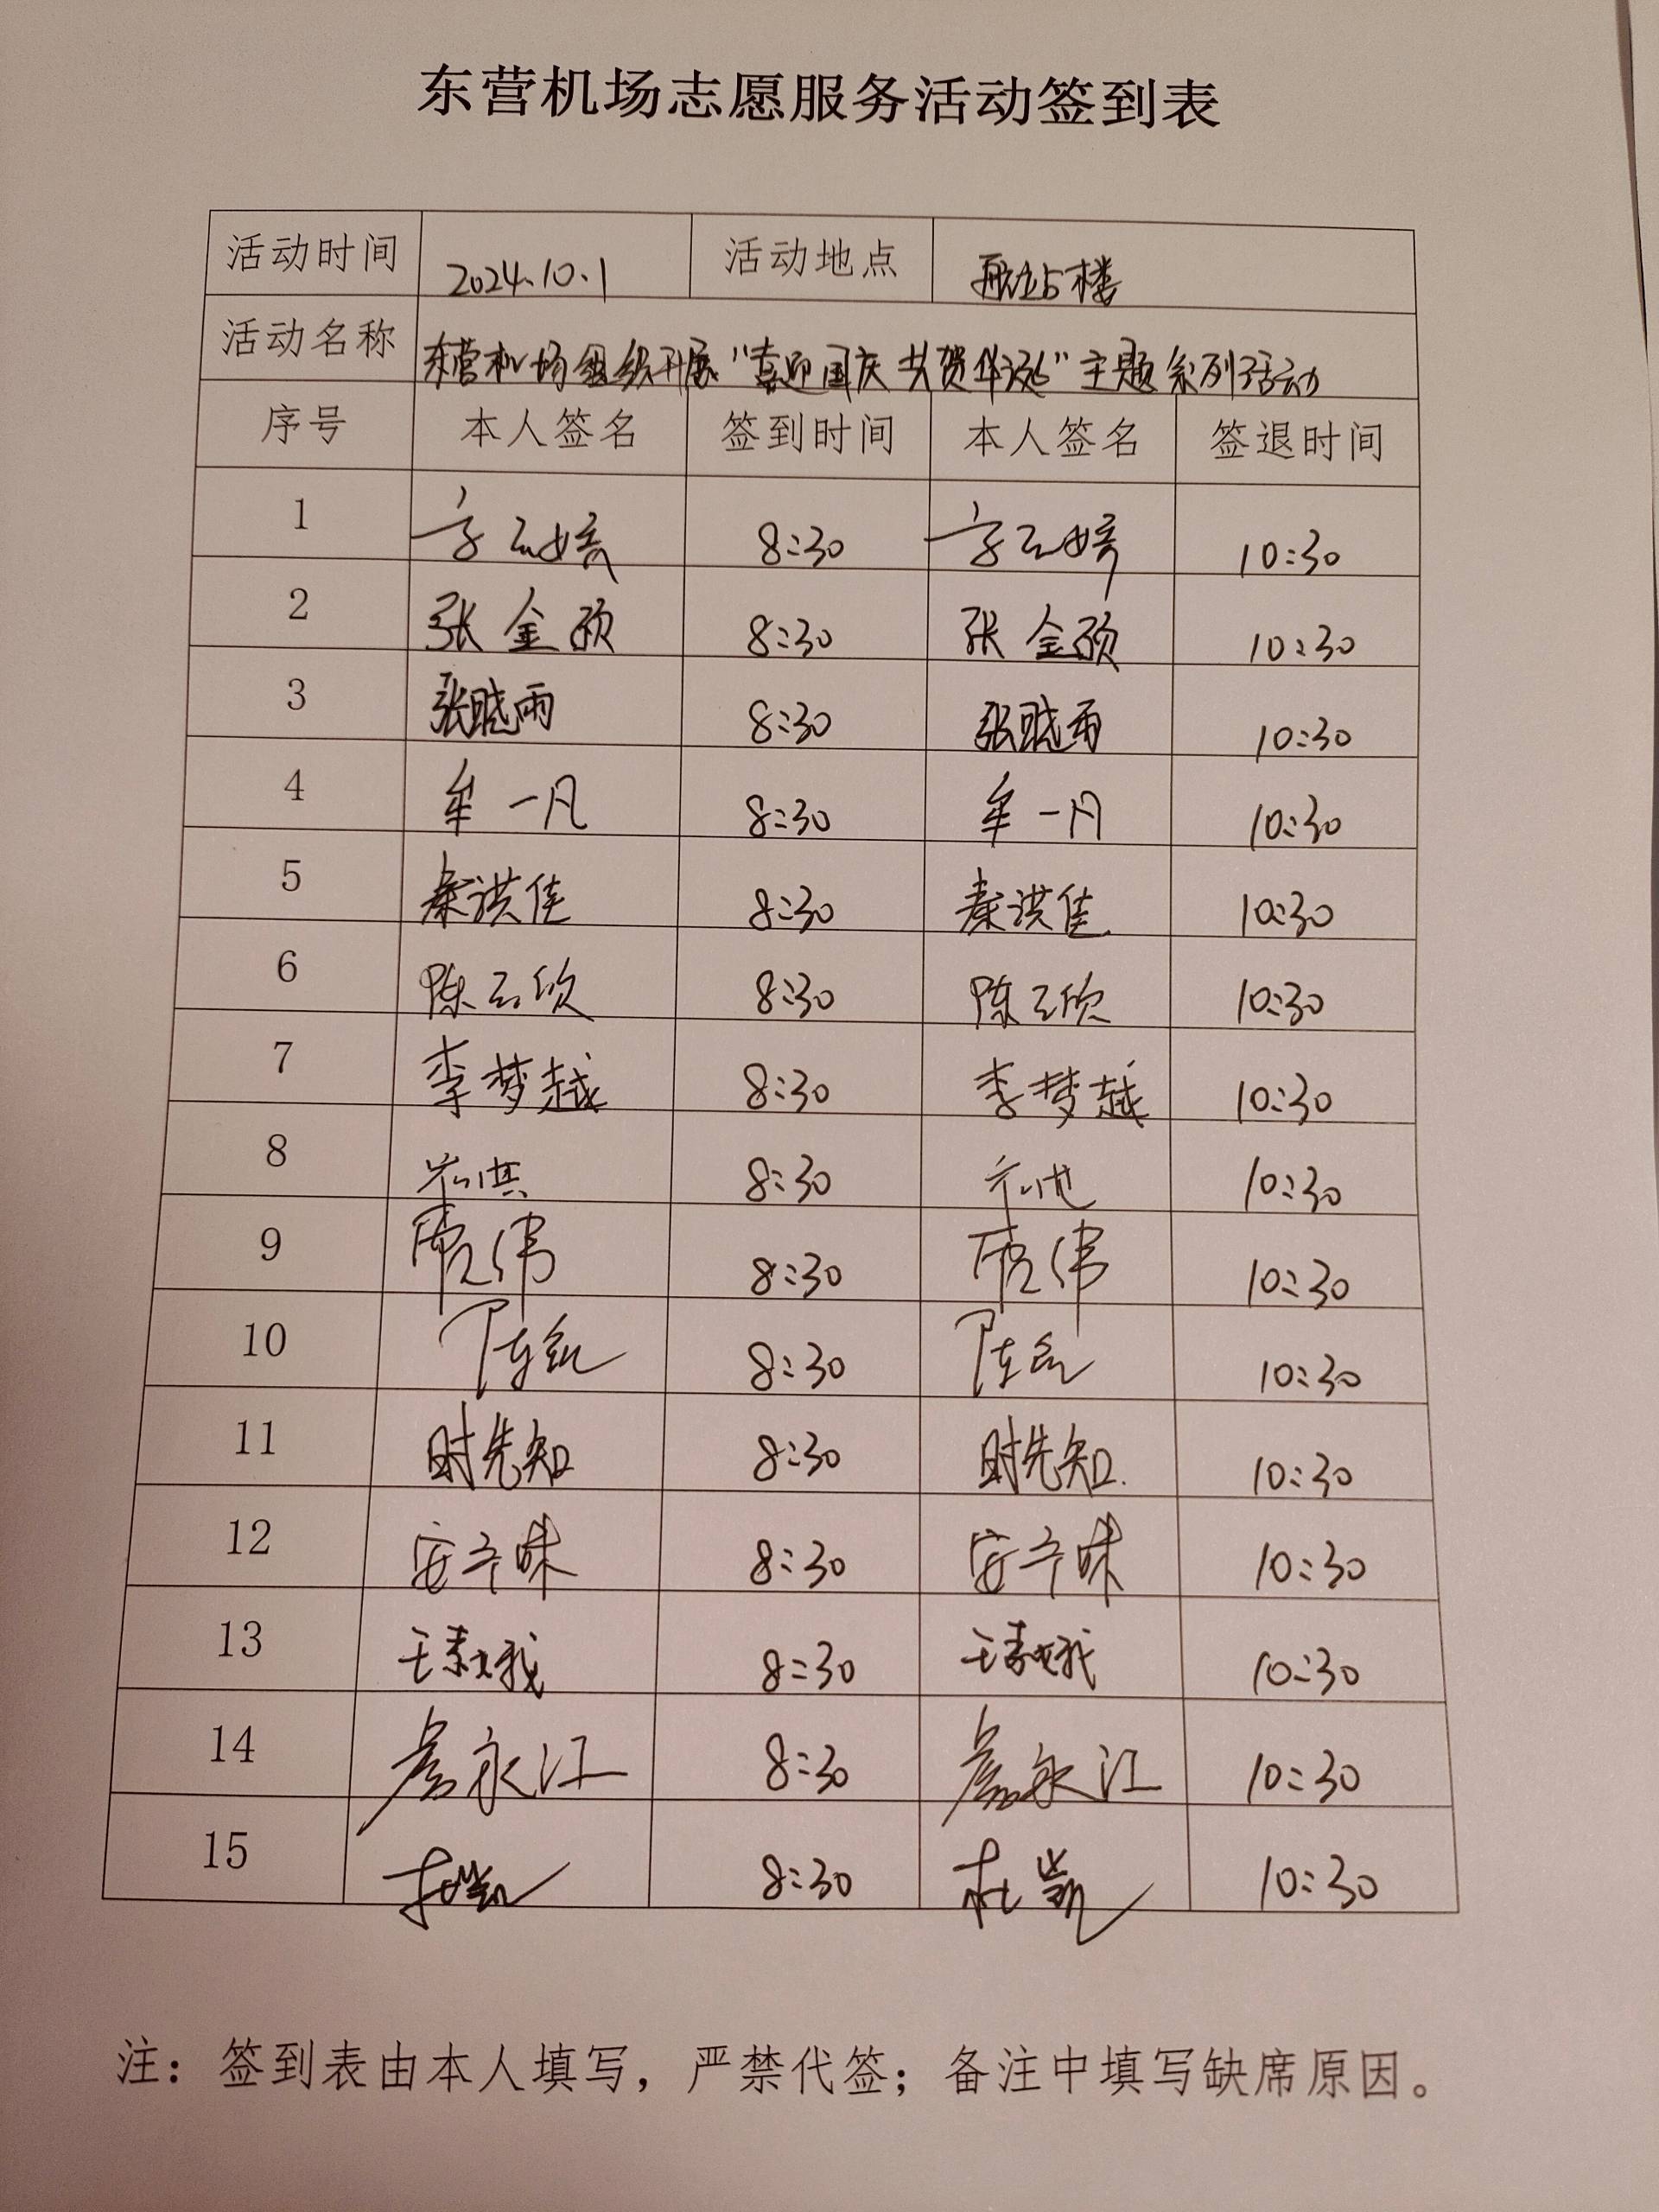 东营机场志愿服务活动签到表
活动时间 2024.10.1 活动地点 航站楼
活动名称 东营机场组织开展“喜迎国庆 共贺华诞”主题系列活动
序号 本人签名 签到时间 本人签名 签退时间
1 8:30 10:30
2 张金硕 8:30 张金硕 10:30
3 张晓雨 8:30 张晓雨 10:30
4 牟一凡 8:30 牟一凡 10:30
5 秦洪佳 8:30 秦洪佳 10:30
6 陈云欣 8:30 陈云欣 10:30
7 李梦越 8:30 李梦越 10:30
8 8:30 10:30
9 贾伟 8:30 贾伟 10:30
10 8:30 10:30
11 时先知 8:30 时先知 10:30
12 8:30 10:30
13 王素娥 8:30 王素娥 10:30
14 彦永江 8:30 彦永江 10:30
15 杜凯 8:30 杜凯 10:30
注：签到表由本人填写，严禁代签；备注中填写缺席原因。